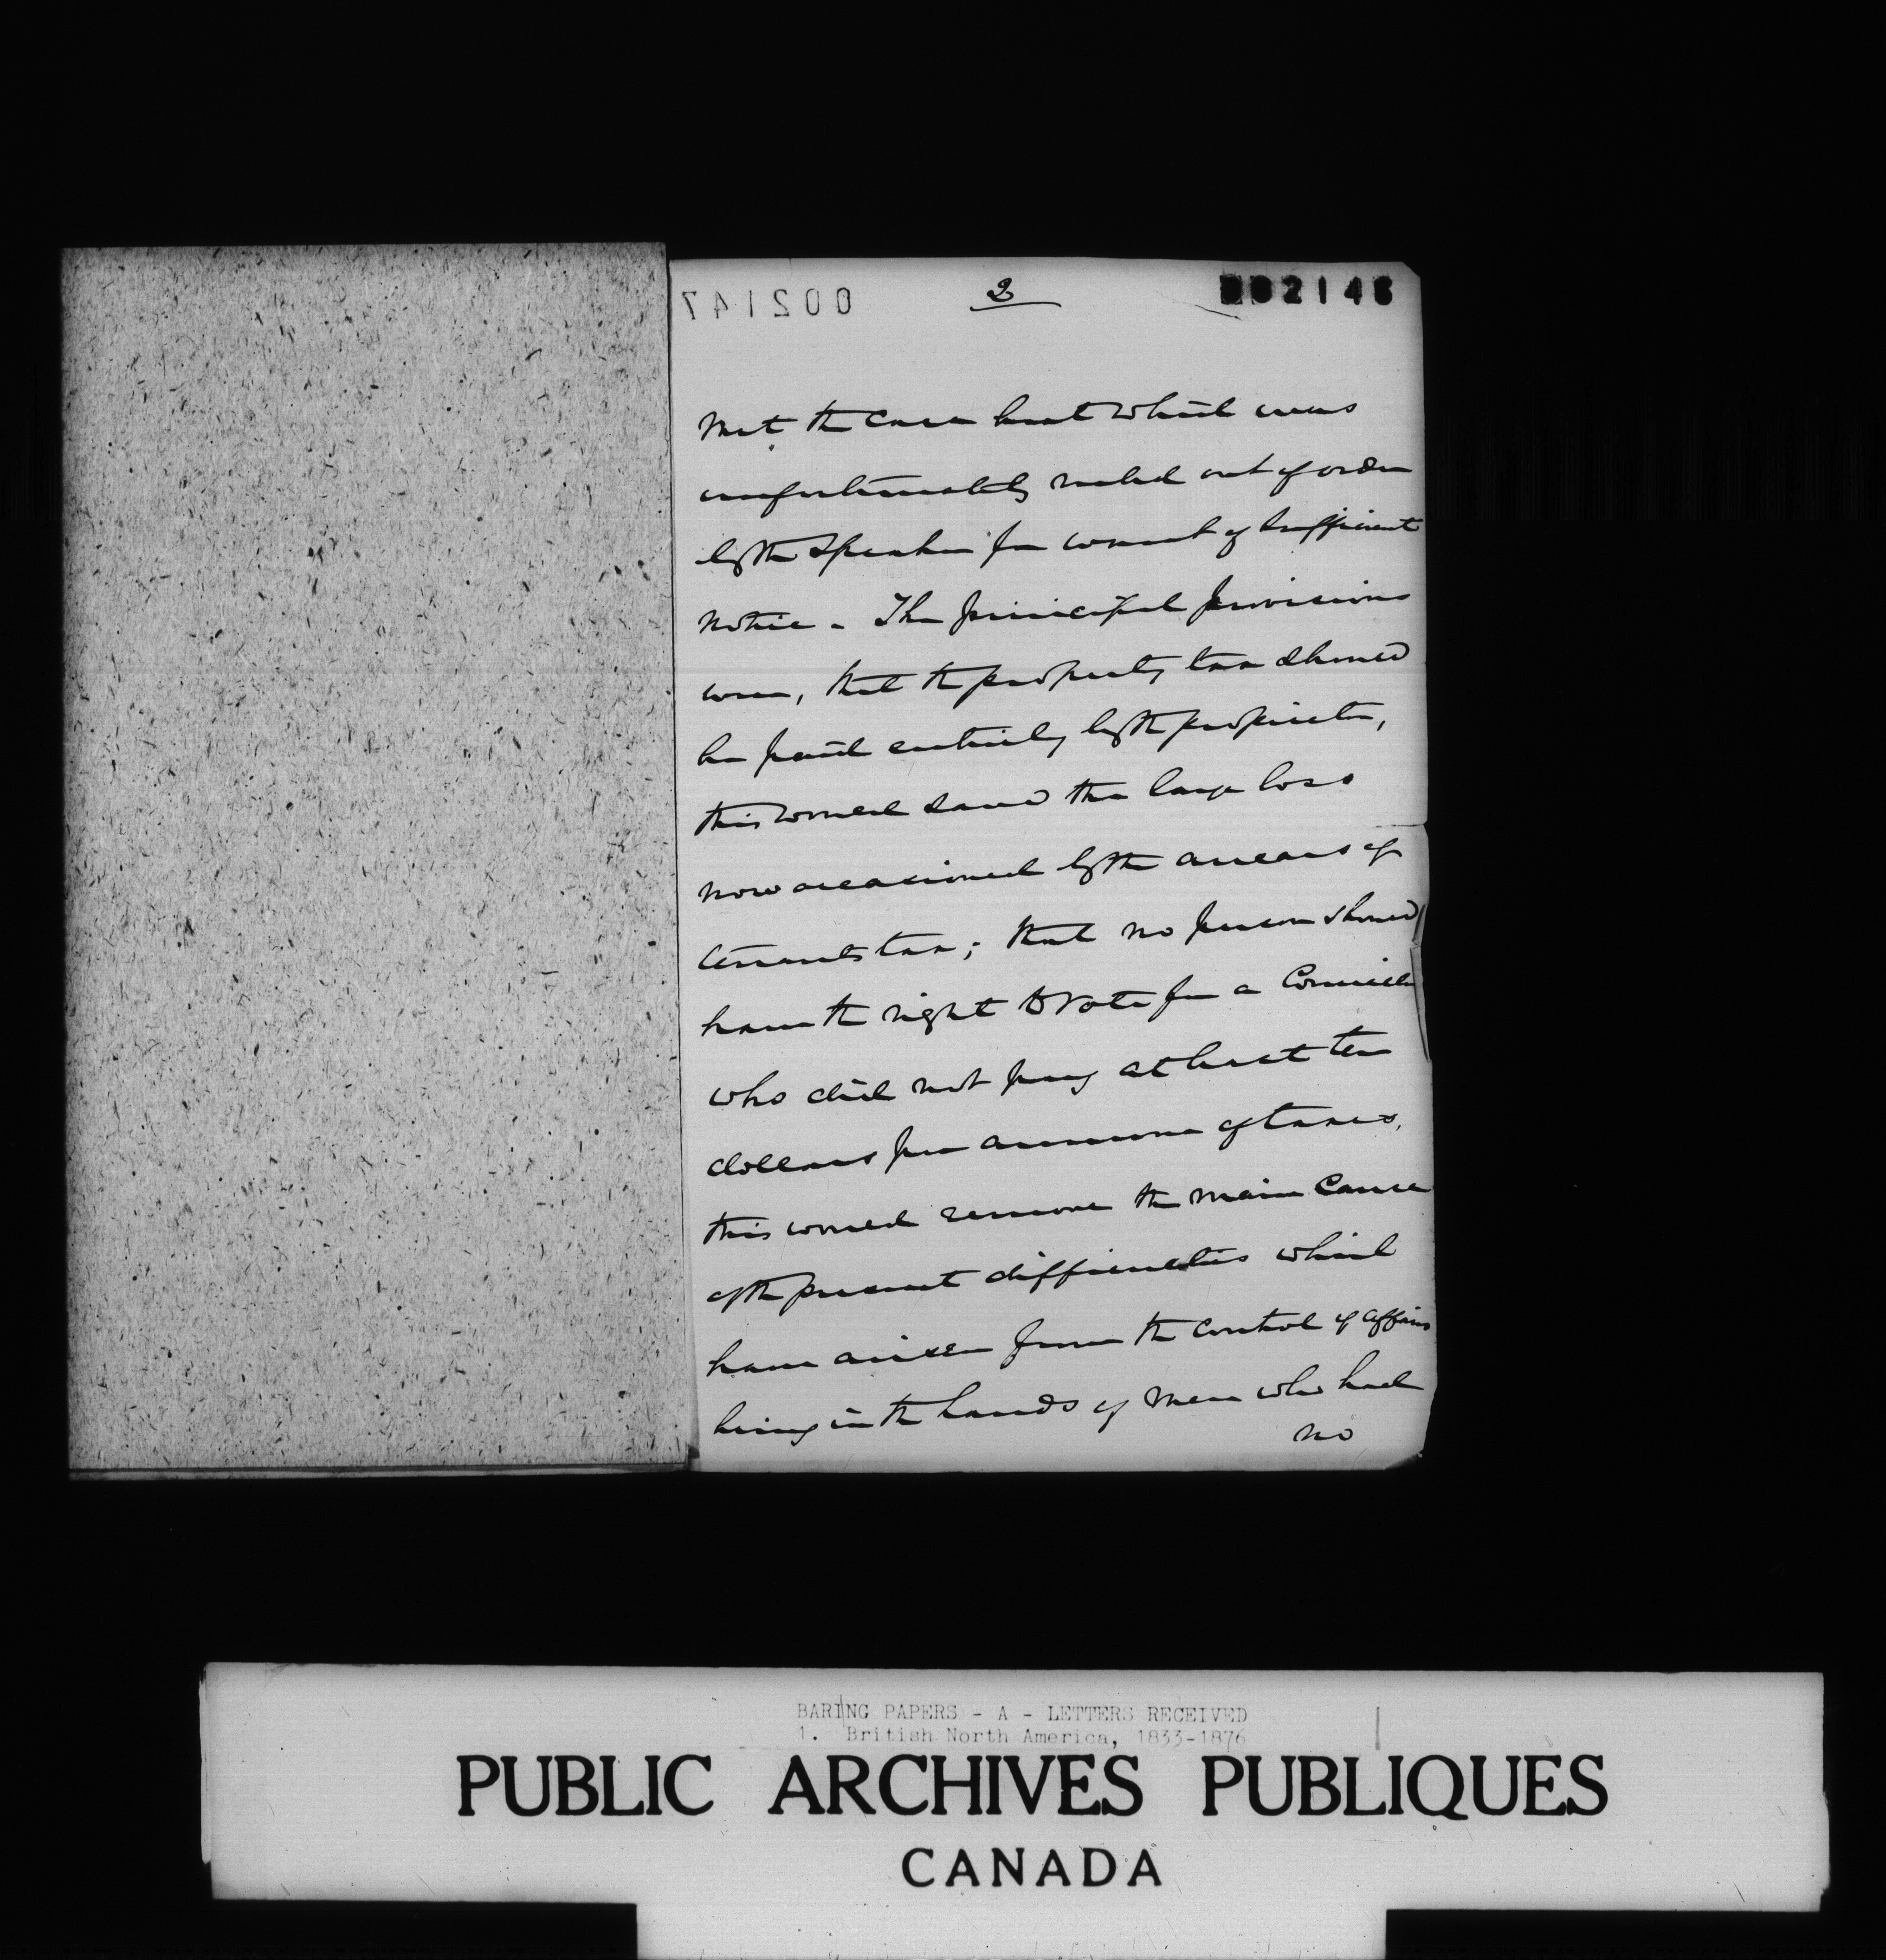 002147
2
002148
met the case but which was
unfortunately ruled out of order
by the Speaker for want of sufficient
notice. The principal provisions
were, that the property tax should
be paid entirely by the proprietor,
this would save the large loss
now occasioned by the arrears of
tenants tax; that no person should
have the right to vote for a Councillor
who did not pay at least ten
dollars per annum of taxes,
this would remove the main cause
of the present difficulties which
have arisen from the control of affairs
being in the hands of men who had
no
BARING PAPERS - A - LETTERS RECEIVED
1. British North America, 1833-1876
PUBLIC ARCHIVES PUBLIQUES
CANADA